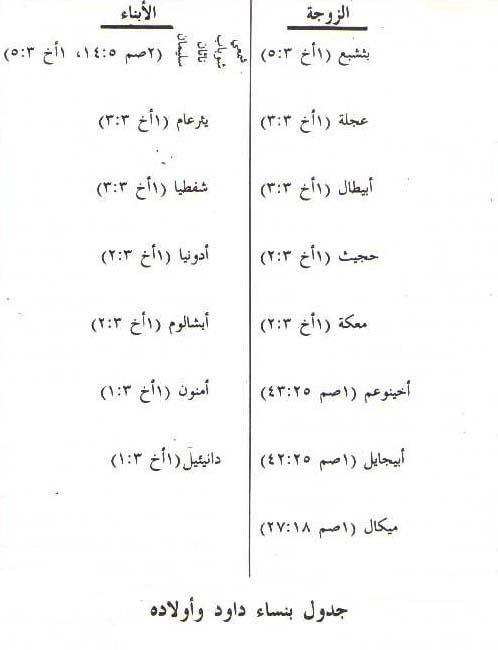 الزوجة الأبناء
بثشبع (١أخ ٥:٣) شمعي شوباب ناثان سليمان (٢صم ١٤:٥، ١أخ ٥:٣)
عجلة (١أخ ٣:٣) يثرعام (١أخ ٣:٣)
أبيطال (١أخ ٣:٣) شفطيا (١أخ ٣:٣)
حجيث (١أخ ٢:٣) أدونيا (١أخ ٢:٣)
معكة (١أخ ٢:٣) أبشالوم (١أخ ٢:٣)
أخينوعم (١صم ٤٣:٢٥) أمنون (١أخ ١:٣)
أبيجايل (١صم ٤٢:٢٥) دانيئيل (١أخ ١:٣)
ميكال (١صم ٢٧:١٨)
جدول بنساء داود وأولاده